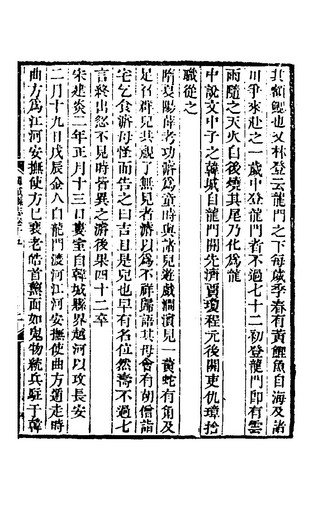 其額鯉也又林登云龍門之下每歲季春有黃鯉魚自海及諸
川爭來赴之一歲中登龍門者不過七十二初登龍門即有雲
雨隨之天火自後燒其尾乃化為龍
中說文中子之韓城自龍門關先濟賈瓊程元後關吏仇璋捨
職從之
隋襄陽薛孝功濬為童時與諸兒遊戲澗濱見一黃蛇有角及
足召群兒共觀了無見者濬以為不祥歸語其母會有胡僧詣
宅乞食濬母怪而告之曰吉且是兒也早有名位然壽不過七
言終出忽不見時皆異之濬後果四十二卒
宋建炎二年正月十三日婁宿自韓城縣界越河以攻長安
二月十九日戊辰金人自龍門渡河江河安撫使曲方遁走時
曲方為江河安撫使方已衰老皓首黧面如鬼物統兵駐于韓